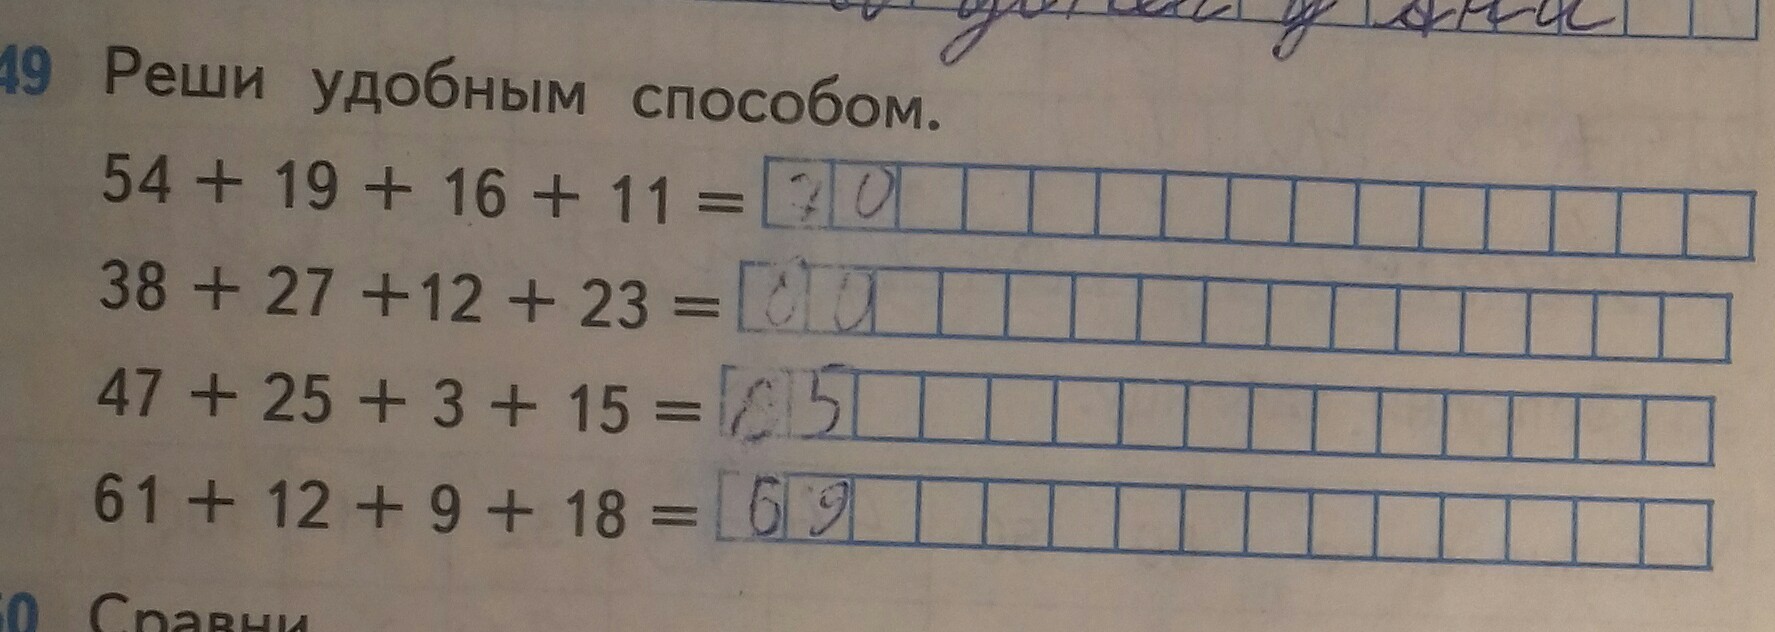 49 Реши удобным способом.
54 + 19 + 16 + 11 = 70
38 + 27 +12 + 23 =
47 + 25 + 3 + 15 = 65
61 + 12 + 9 + 18 = 69
Сравни